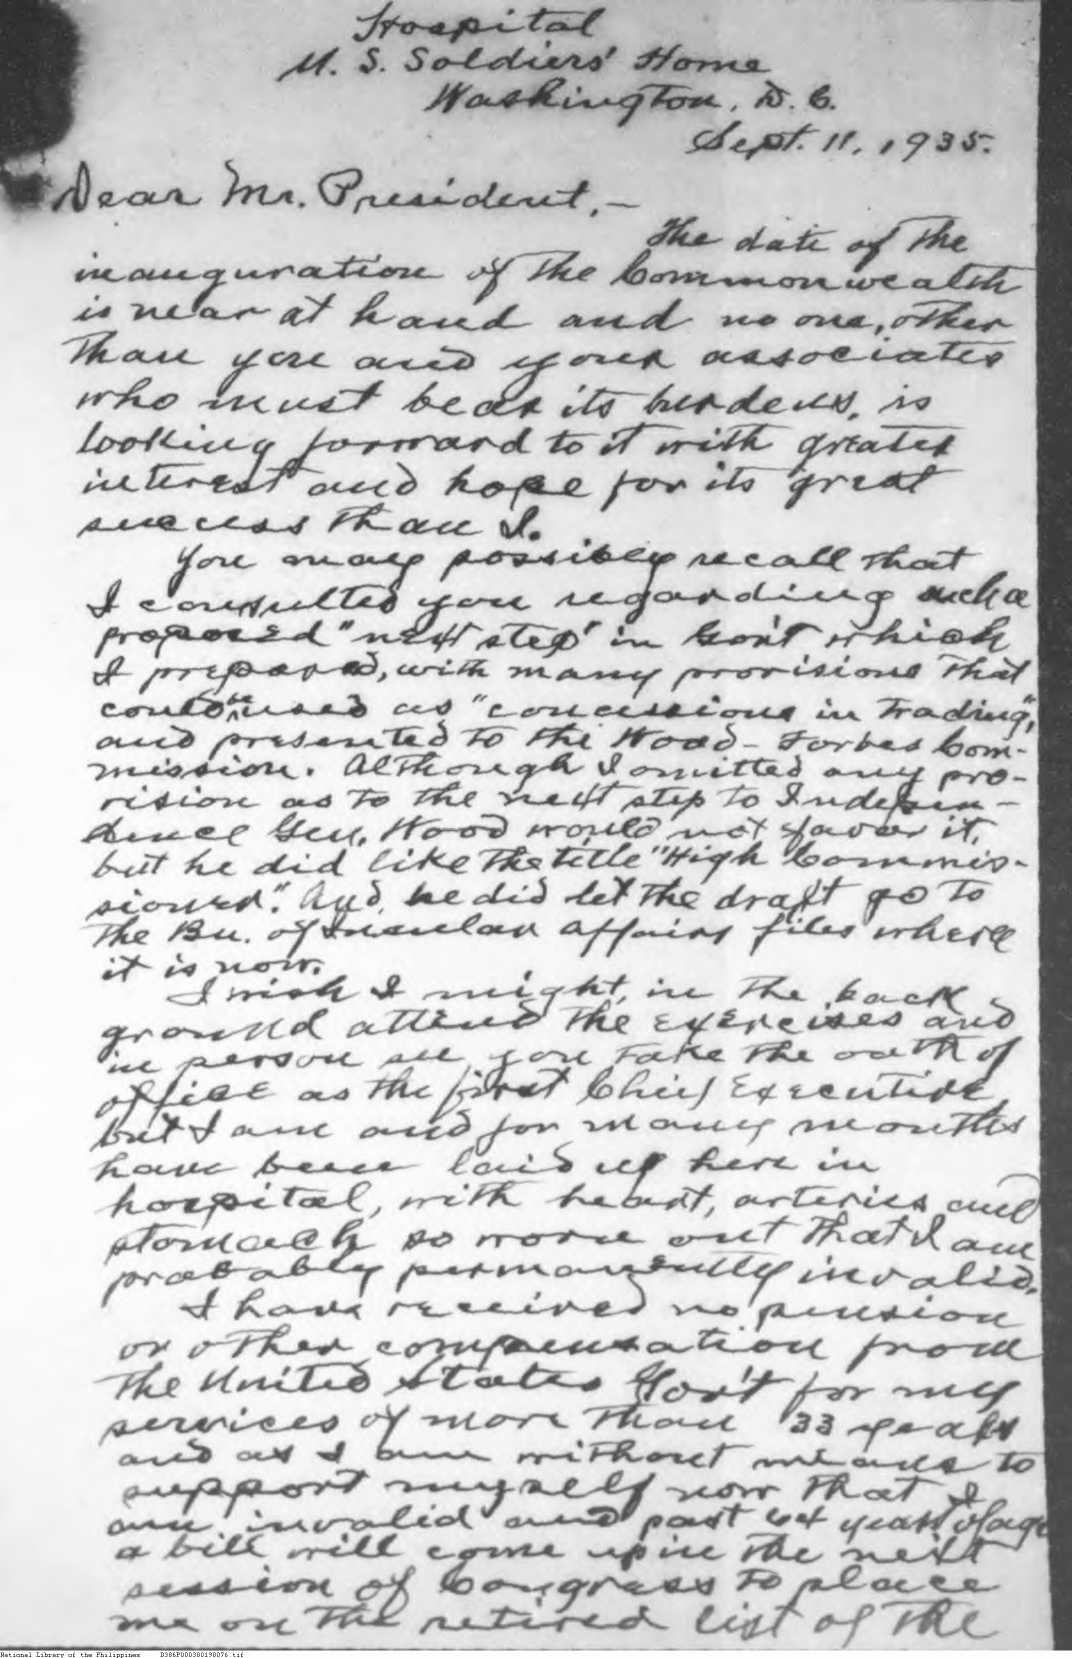 Hospital
U. S. Soldiers' Home
Washington, D. C.
Sept. 11, 1935.
Dear Mr. President, –
The date of the
inauguration of the Commonwealth
is near at hand and no one, other
than you and your associates
who must bear its burdens, is
looking forward to it with greater
interest and hope for its great
success than I.
You may possibly recall that
I consulted you regarding such a
proposed "next step" in Gov't which
I prepared, with many provisions that
could be used as "concessions in trading",
and presented to the Wood-Forbes Com-
mission. Although I omitted any pro-
vision as to the next step to Indepen-
dence Gen. Wood would not favor it,
but he did like the title "High Commis-
sioner". And he did let the draft go to
the Bu. of Insular Affairs files where
it is now.
I wish I might, in the back
ground attend the exercises and
in person see you take the oath of
office as the first Chief Executive
but I am and for many months
have been laid up here in
hospital, with heart, arteries and
stomach so worn out that I am
probably permanently invalid.
I have received no pension
or other compensation from
the United States Gov't for my
services of more than 33 years
and as I am without means to
support myself now that I
am invalid and past 64 years of age
a bill will come up in the next
session of Congress to place
me on the retired list of the
National Library of the Philippines D386P000380198076.tif